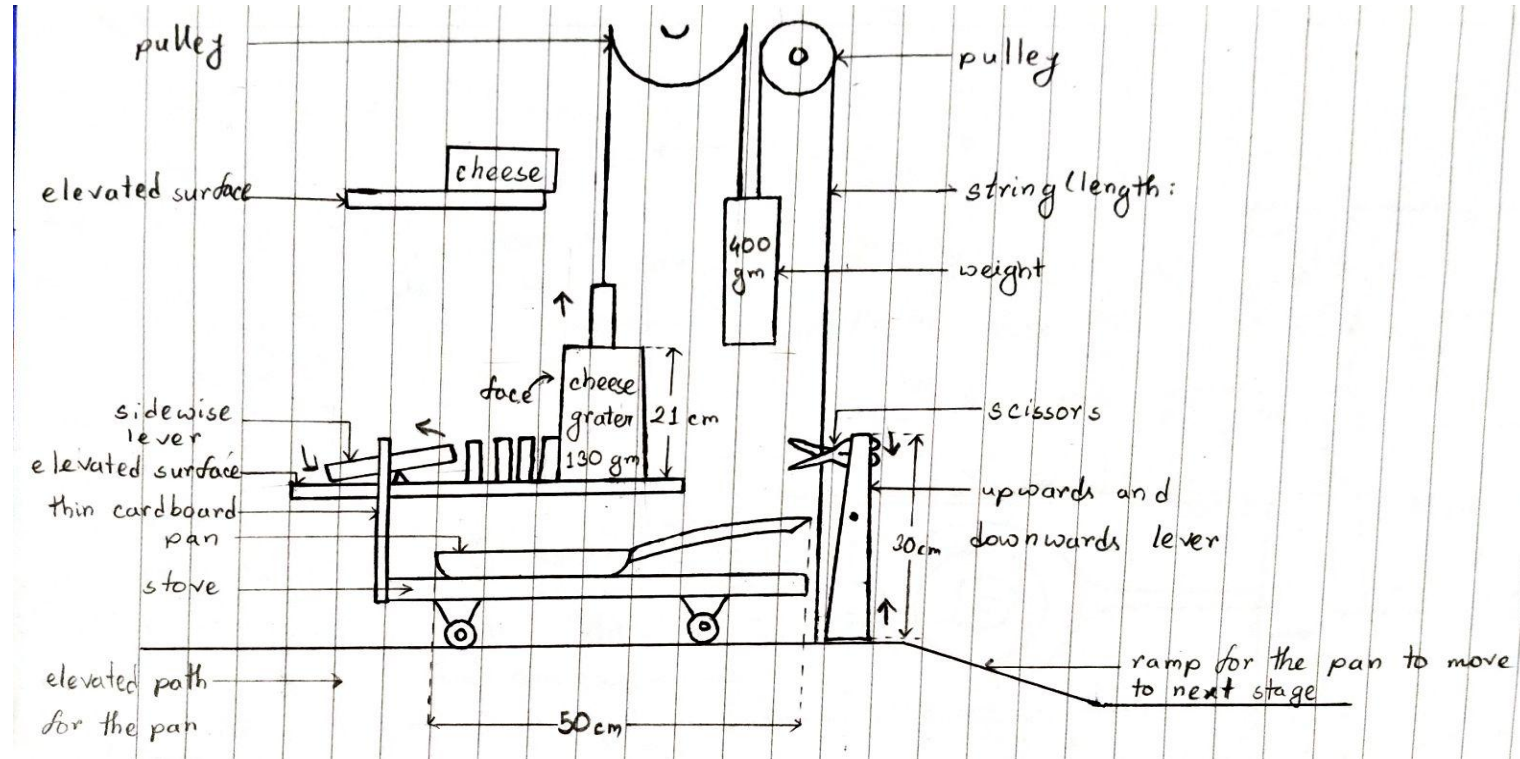 pulley
pulley
cheese
elevated surface
string (length:
400
gm
weight
face
cheese
grater
130 gm
21 cm
sidewise
lever
scissors
elevated surface
thin cardboard
upwards and
downwards lever
pan
30cm
stove
ramp for the pan to move
to next stage
elevated path
for the pan
50cm